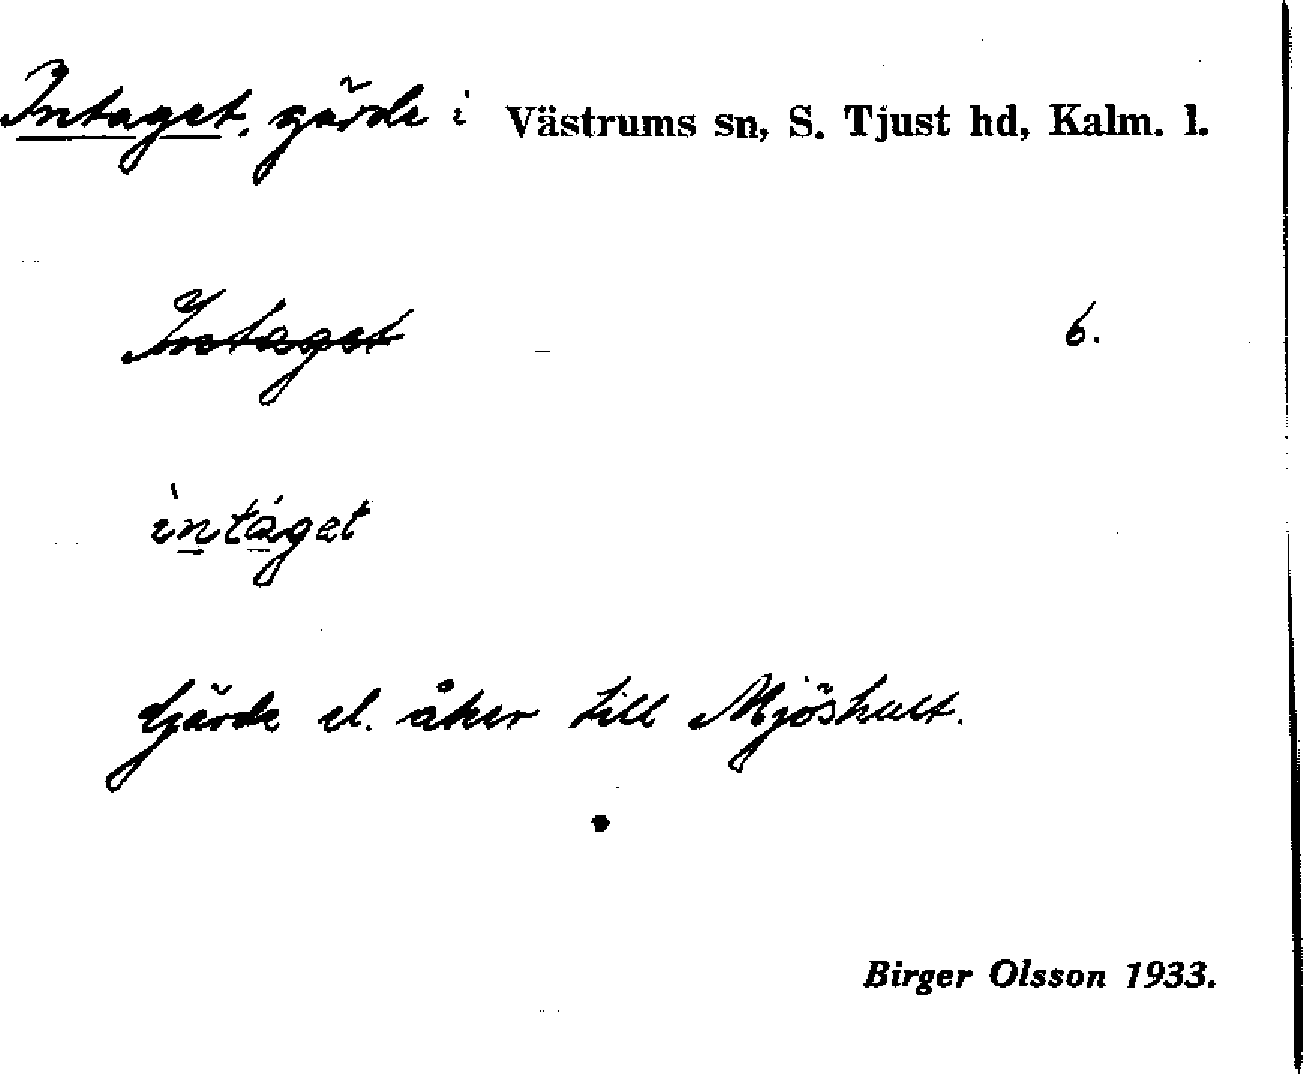 Intaget, gärde i Västrums sn, S. Tjust hd, Kalm. l.
Intaget 6.
intaget
Gärde el. åker till Mjöshult.
Birger Olsson 1933.